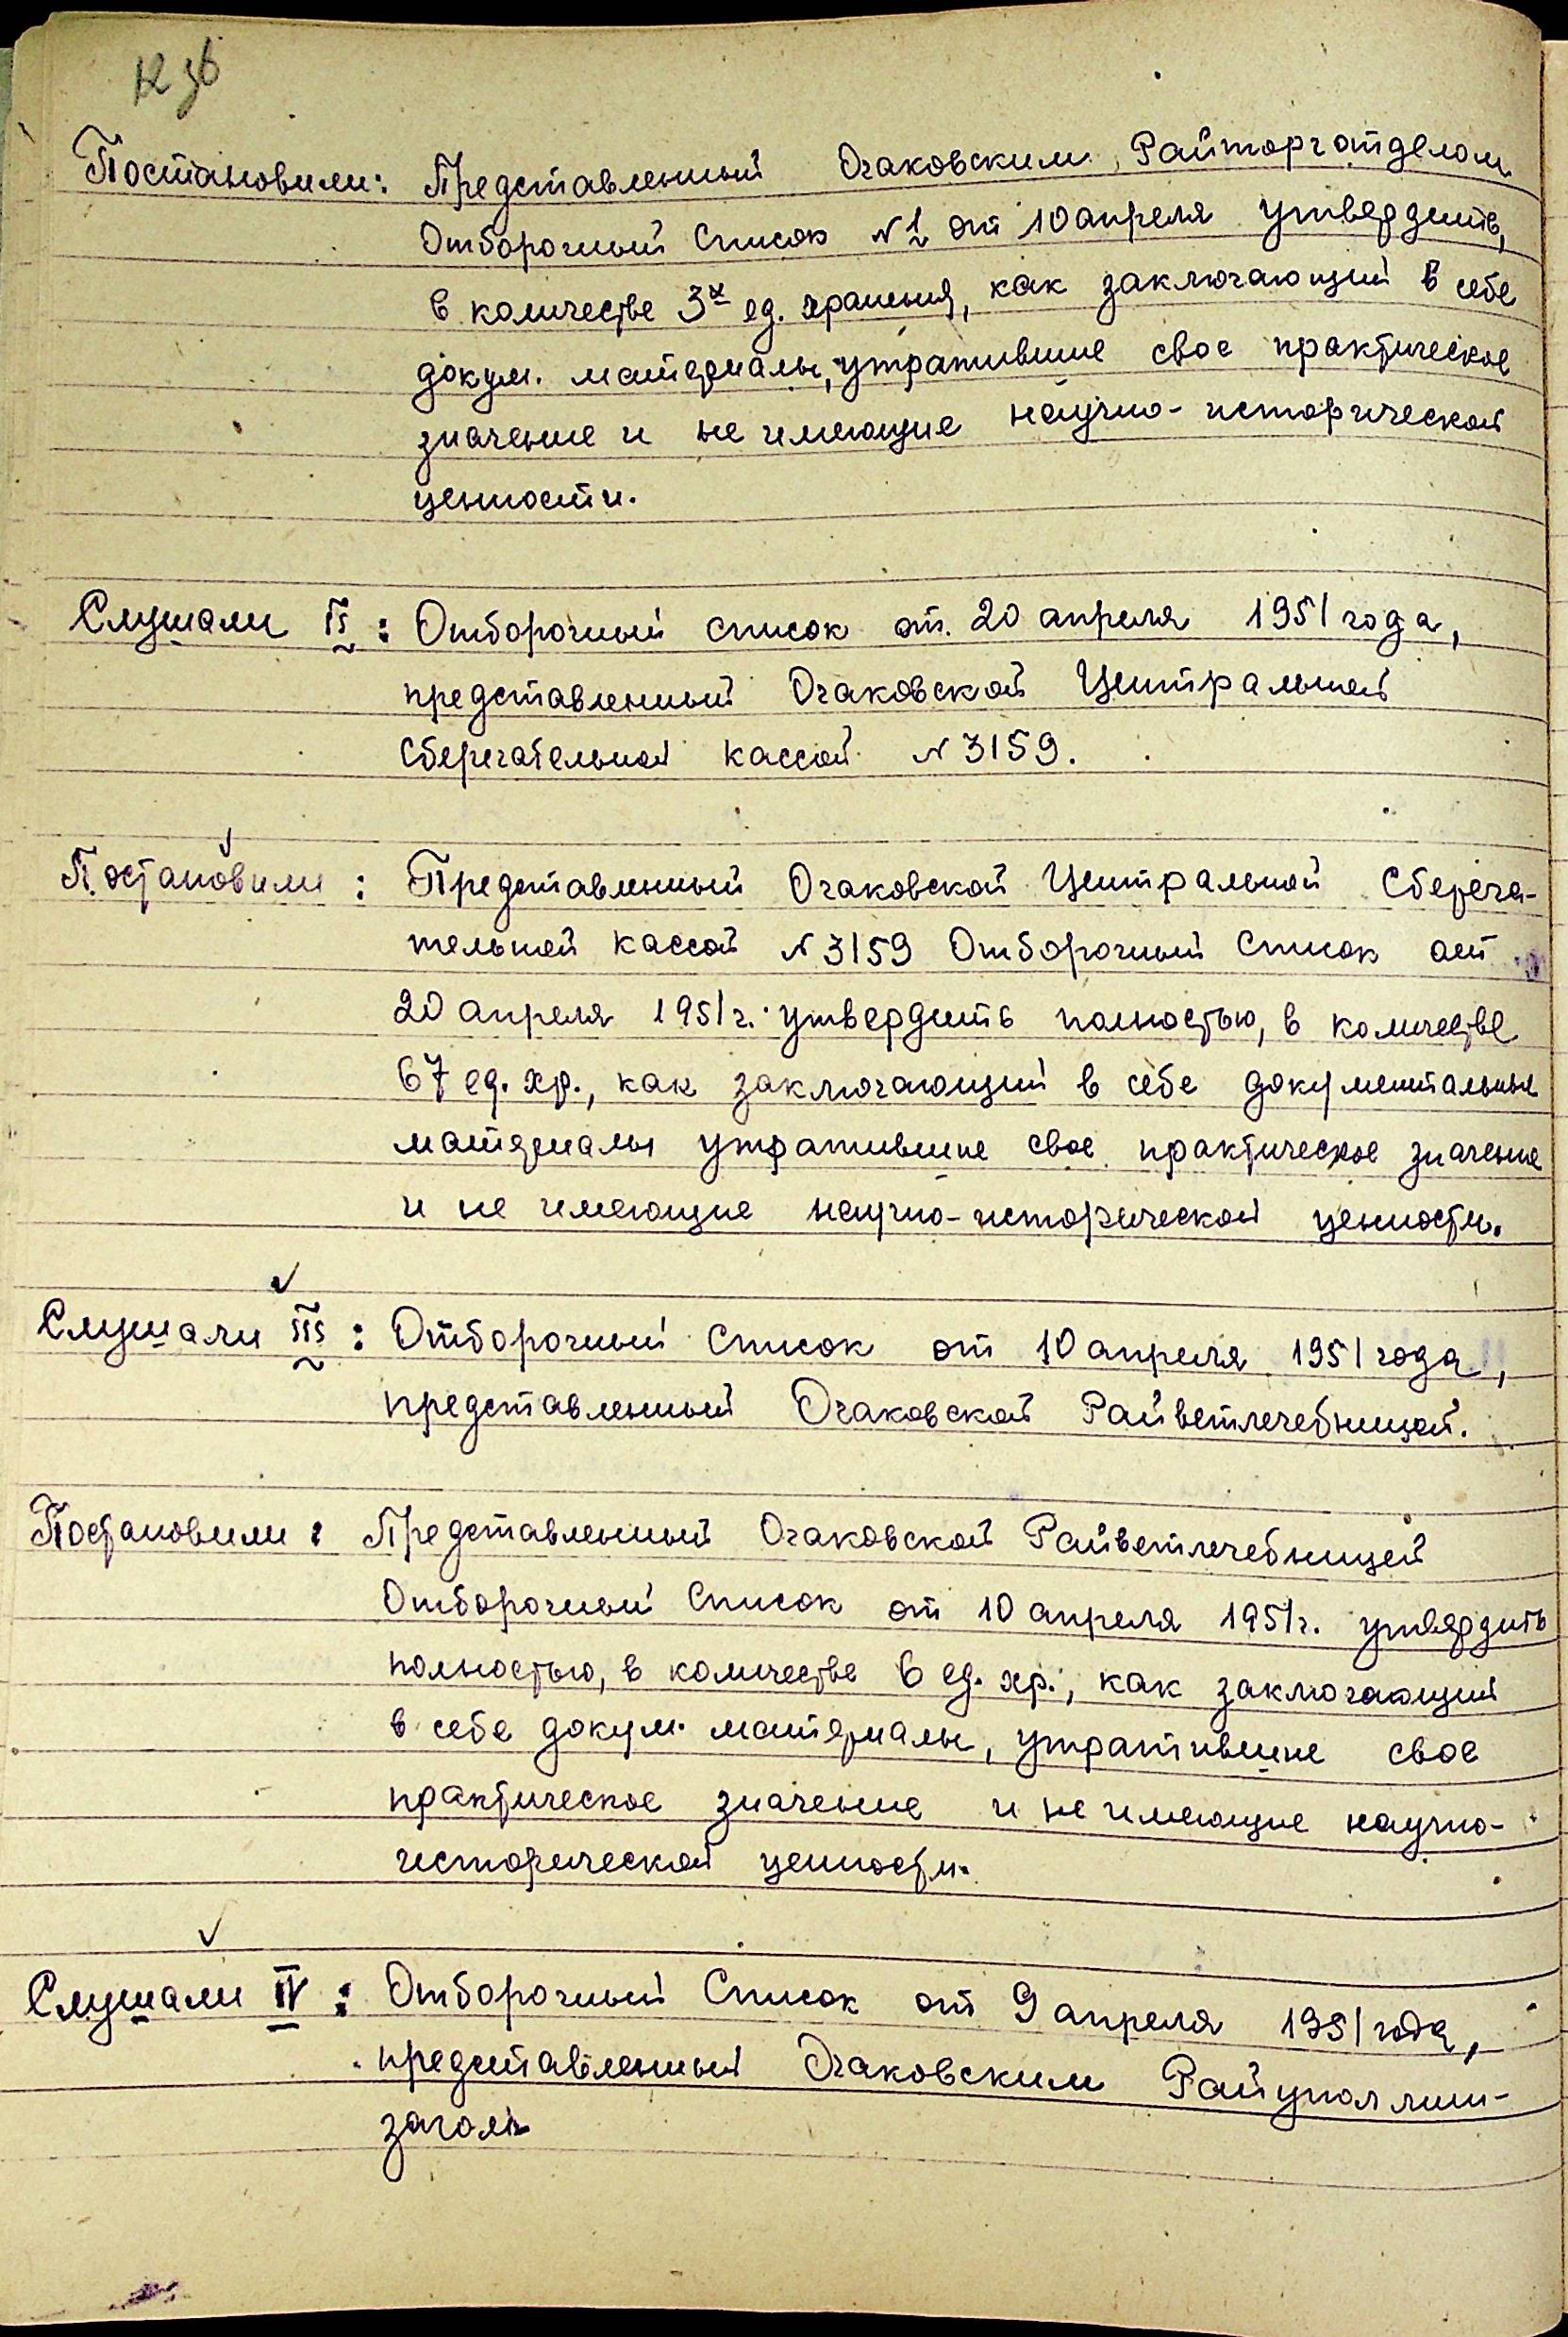 Постановили: Представленный Очаковским Райторготделом
Отборочный Список №1 от 10 апреля утвердить,
в количестве 3х ед. хранения, как заключающий в себе
докум. материалы, утратившие свое практическое
значение и не имеющие научно-исторической
ценности.
Слушали II: Отборочный список от 20 апреля 1951 года,
представленный Очаковской Центральной
Сберегательной кассой №3159.
Постановили: Представленный Очаковской Центральной Сберега-
тельной кассой №3159 Отборочный Список от
20 апреля 1951г. утвердить полностью, в количестве
67 ед. хр., как заключающий в себе документальные
материалы утратившие свое практическое значение
и не имеющие научно-исторической ценности.
Слушали III: Отборочный Список от 10 апреля 1951 года,
представленный Очаковской Райветлечебницей.
Постановили: Представленный Очаковской Райветлечебницей
Отборочный Список от 10 апреля 1951г. утвердить
полностью, в количестве 6 ед. хр., как заключающий
в себе докум. материалы, утратившие свое
практическое значение и не имеющие научно-
исторической ценности.
Слушали IV: Отборочный Список от 9 апреля 1951 года,
представленный Очаковским Райуполмин-
загом